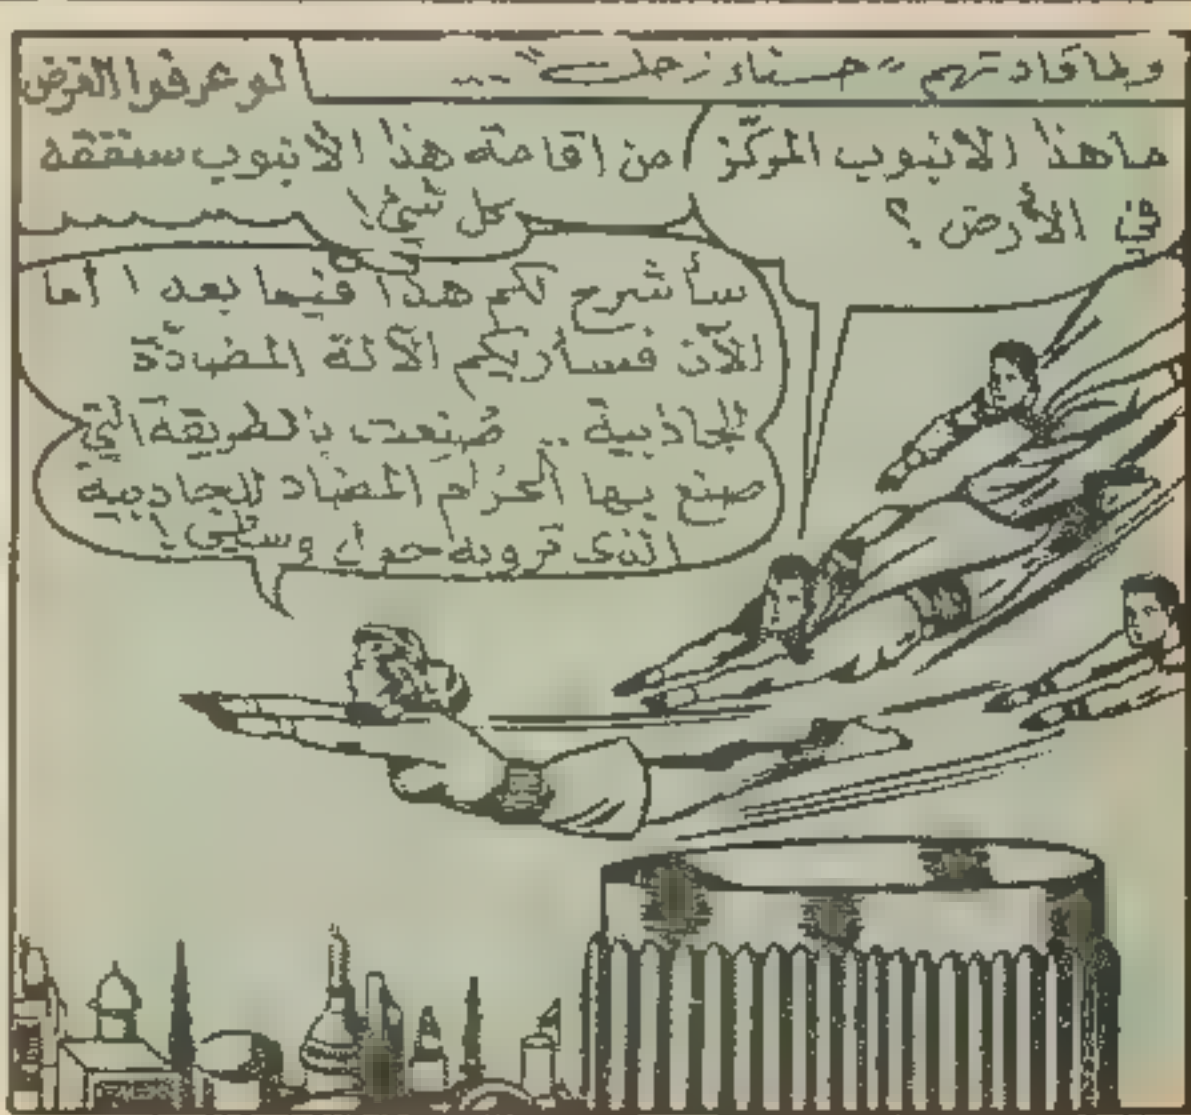 ولما قادتهم "حسناء زحل"...
ما هذا الأنبوب المركّز
في الأرض ؟
لو عرفوا الغرض
من اقامة هذا الأنبوب ستفقد
كل شئ !
سأشرح لكم هذا فيما بعد ! أما
الآن فسأريكم الآلة المضادّة
للجاذبية .. صُنِعت بالطريقة التي
صنع بها الحزام المضاد للجاذبية
الذى ترونه حول وسطي !